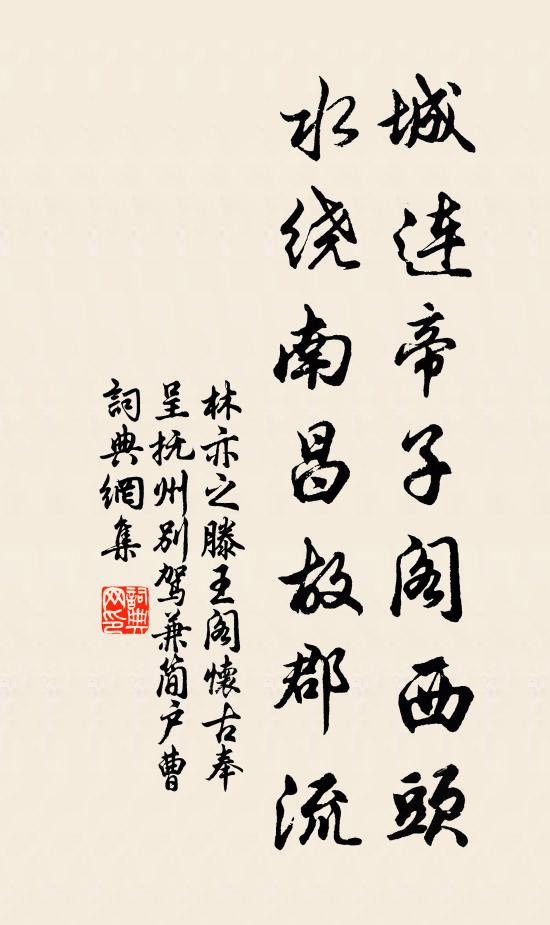 城连帝子阁西头
水绕南昌故郡流
林亦之滕王阁怀古奉
呈抚州别驾兼简户曹
词典網集
詞典
网印